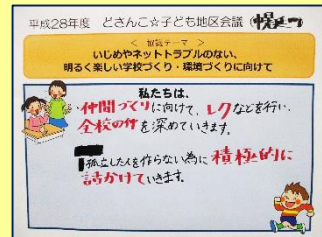 平成28年度 どさんこ☆子ども地区会議(幌延町)
< 協議テーマ >
いじめやネットトラブルのない、
明るく楽しい学校づくり・環境づくりに向けて
私たちは、
・仲間づくりに向けて、レクなどを行い、
全校の仲を深めていきます。
孤立した人を作らない為に積極的に
話かけていきます。